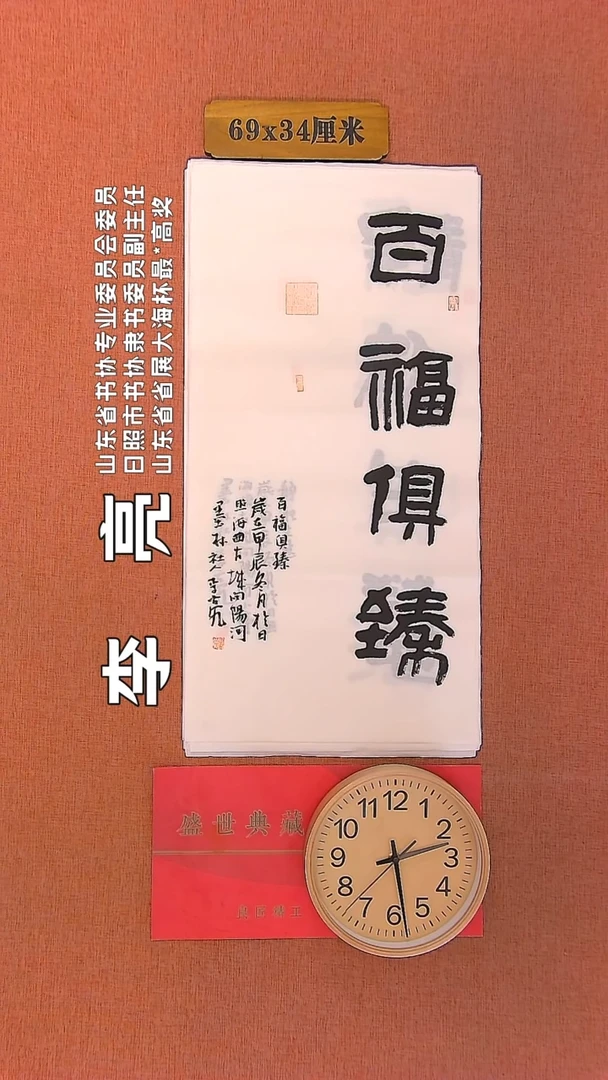 69x34厘米
百福俱臻
百福俱臻
岁在甲辰冬月於日
照海西古城向陽河
墨林社人李亮
山东省书协专业委员会委员
日照市书协隶书委员副主任
山东省省展大海杯最*高奖
李亮
盛世典藏
良匠精工
12
1
2
3
4
5
6
7
8
9
10
11